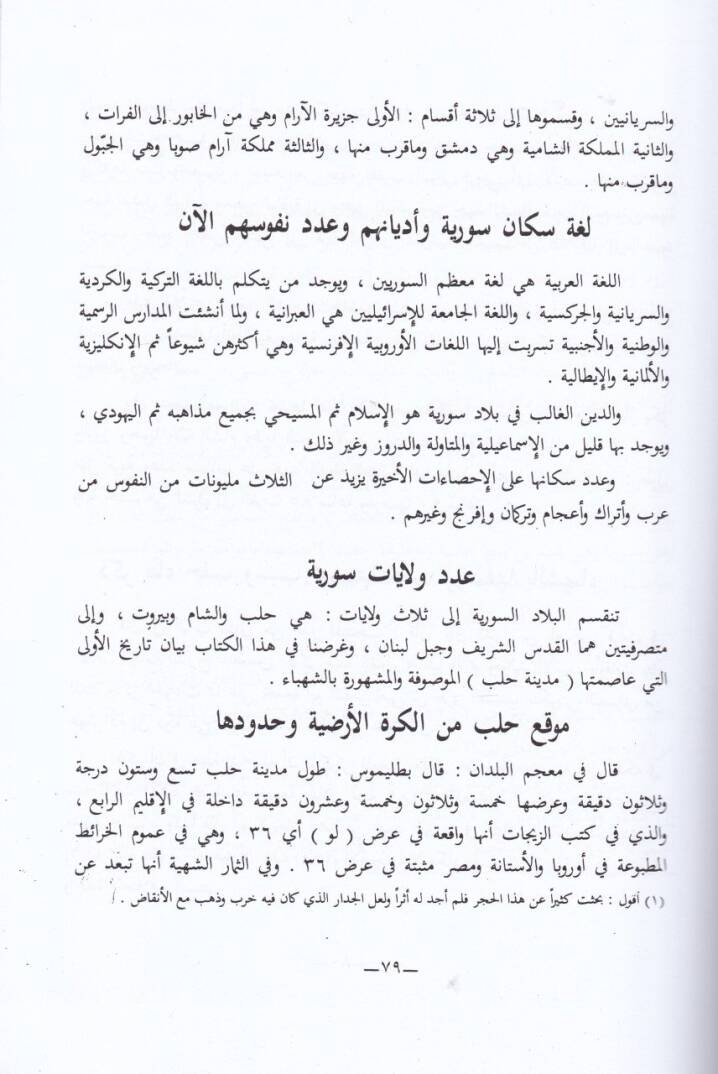 والسريانيين ، وقسموها إلى ثلاثة أقسام : الأولى جزيرة الآرام وهي من الخابور إلى الفرات ،
والثانية المملكة الشامية وهي دمشق وماقرب منها ، والثالثة مملكة آرام صوبا وهي الجبّول
وماقرب منها .
لغة سكان سورية وأديانهم وعدد نفوسهم الآن
اللغة العربية هي لغة معظم السوريين ، ويوجد من يتكلم باللغة التركية والكردية
والسريانية والجركسية ، واللغة الجامعة للإسرائيليين هي العبرانية ، ولما أنشئت المدارس الرسمية
والوطنية والأجنبية تسربت إليها اللغات الأوروبية الإفرنسية وهي أكثرهن شيوعاً ثم الإنكليزية
والألمانية والإيطالية .
والدين الغالب في بلاد سورية هو الإسلام ثم المسيحي بجميع مذاهبه ثم اليهودي ،
ويوجد بها قليل من الإسماعيلية والمتاولة والدروز وغير ذلك .
وعدد سكانها على الإحصاءات الأخيرة يزيد عن الثلاث مليونات من النفوس من
عرب وأتراك وأعجام وتركمان وإفرنج وغيرهم .
عدد ولايات سورية
تنقسم البلاد السورية إلى ثلاث ولايات : هي حلب والشام وبيروت ، وإلى
متصرفيتين هما القدس الشريف وجبل لبنان ، وغرضنا في هذا الكتاب بيان تاريخ الأولى
التي عاصمتها ( مدينة حلب ) الموصوفة والمشهورة بالشهباء .
موقع حلب من الكرة الأرضية وحدودها
قال في معجم البلدان : قال بطليموس : طول مدينة حلب تسع وستون درجة
وثلاثون دقيقة وعرضها خمسة وثلاثون وخمسة وعشرون دقيقة داخلة في الإقليم الرابع ،
والذي في كتب الزيجات أنها واقعة في عرض ( لو ) أي ٣٦ ، وهي في عموم الخرائط
المطبوعة في أوروبا والأستانة ومصر مثبتة في عرض ٣٦ . وفي الثمار الشهية أنها تبعد عن
(١) أقول : بحثت كثيراً عن هذا الحجر فلم أجد له أثراً ولعل الجدار الذي كان فيه خرب وذهب مع الأنقاض .
—٧٩—